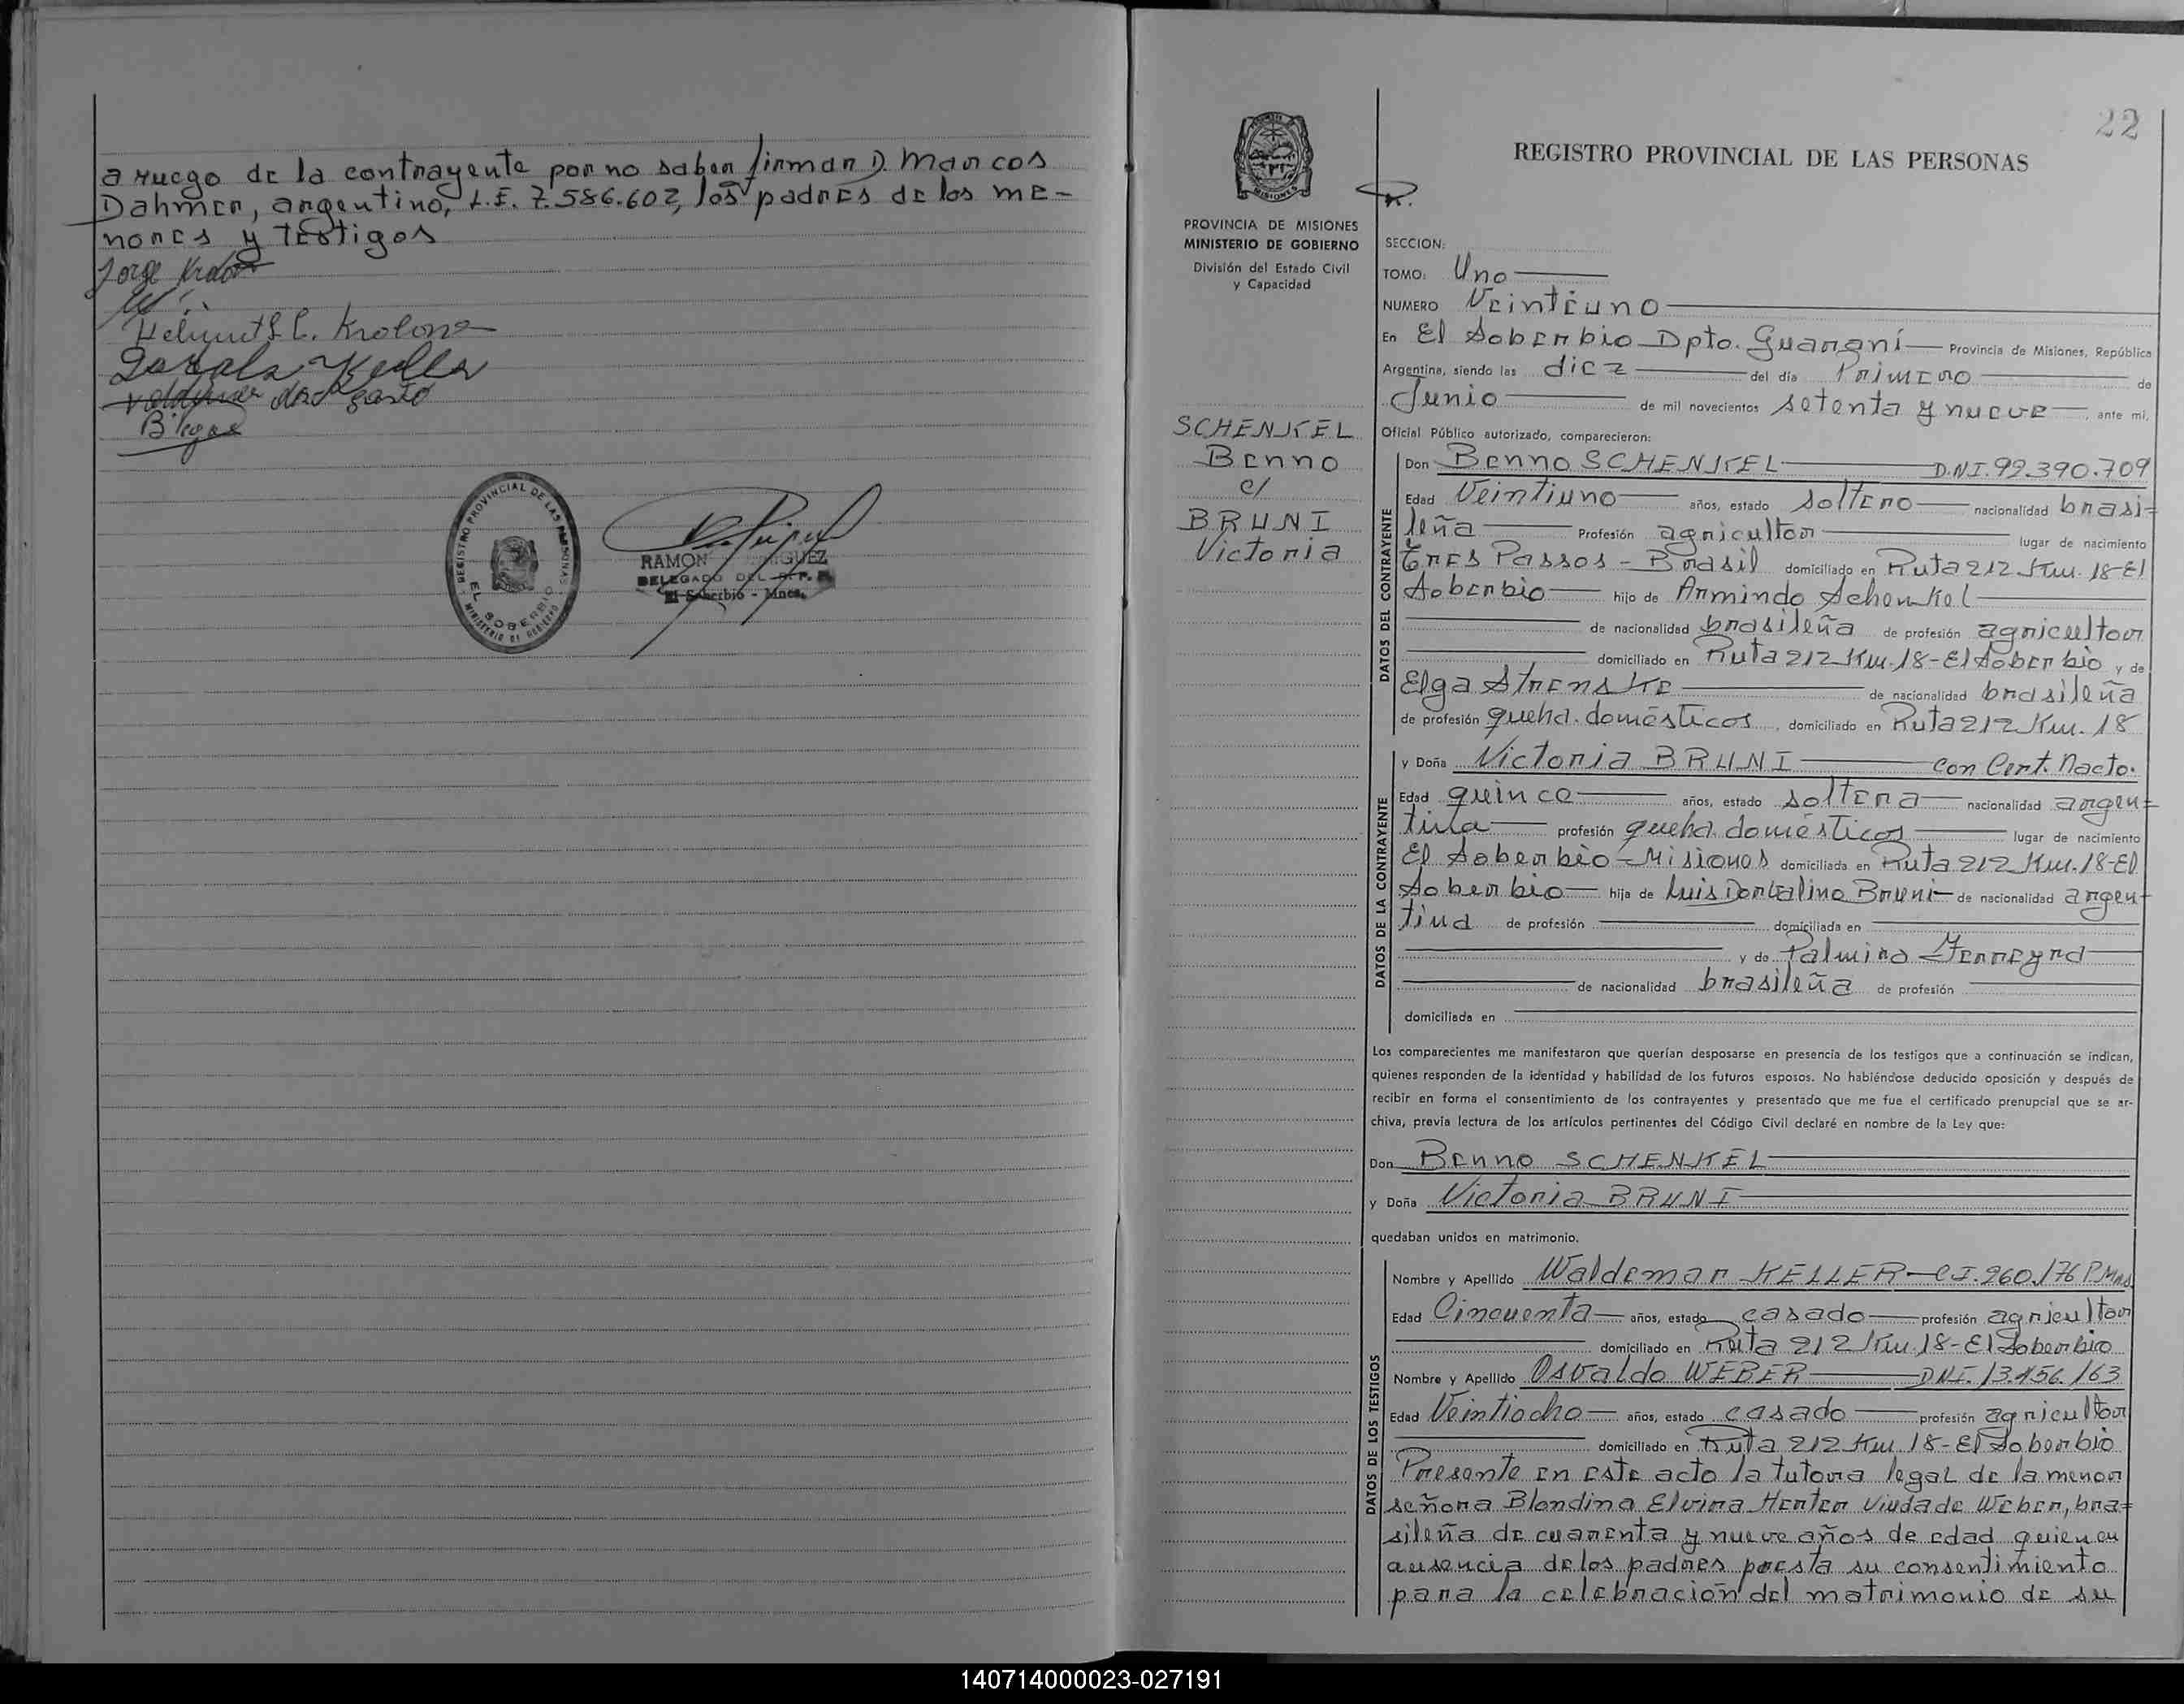 a ruego de la contrayente por no saber firmar D. Marcos
Dahmer, argentino, L.E. 7.586.602, los padres de los me-
nores y testigos
Jorge
Helmuth C.
Keller
RAMON
DELEGADO DEL R.P.P.
El Soberbio - Mnes.
REGISTRO PROVINCIAL DE LAS PERSONAS
EL SOBERBIO
MINISTERIO DE GOBIERNO
22
REGISTRO PROVINCIAL DE LAS PERSONAS
MISIONES
PROVINCIA DE MISIONES
MINISTERIO DE GOBIERNO
División del Estado Civil
y Capacidad
SCHENKEL
Benno
c/
BRUNI
Victoria
SECCION:
TOMO: Uno
NUMERO Veintiuno
En El Soberbio Dpto. Guaraní Provincia de Misiones, República
Argentina, siendo las diez del día Primero de
Junio de mil novecientos setenta y nueve, ante mí,
Oficial Público autorizado, comparecieron:
DATOS DEL CONTRAYENTE
Don Benno SCHENKEL D.N.I. 92.390.709
Edad Veintiuno años, estado soltero nacionalidad brasi=
leña Profesión agricultor lugar de nacimiento
Tres Passos - Brasil domiciliado en Ruta 212 Km. 18-El
Soberbio hijo de Armindo Schenkel
de nacionalidad brasileña de profesión agricultor
domiciliado en Ruta 212 Km. 18-El Soberbio y de
Elga Strenske de nacionalidad brasileña
de profesión queha. domésticos, domiciliado en Ruta 212 Km. 18
DATOS DE LA CONTRAYENTE
y Doña Victoria BRUNI con Cert. Nacto.
Edad quince años, estado soltera nacionalidad argen=
tina profesión queha. domésticos lugar de nacimiento
El Soberbio - Misiones domiciliada en Ruta 212 Km. 18-El
Soberbio hija de Luis Bruni de nacionalidad argen-
tina de profesión domiciliada en
y de Palmira Ferreyra
de nacionalidad brasileña de profesión
domiciliada en
Los comparecientes me manifestaron que querían desposarse en presencia de los testigos que a continuación se indican,
quienes responden de la identidad y habilidad de los futuros esposos. No habiéndose deducido oposición y después de
recibir en forma el consentimiento de los contrayentes y presentado que me fue el certificado prenupcial que se ar-
chiva, previa lectura de los artículos pertinentes del Código Civil declaré en nombre de la Ley que:
Don Benno SCHENKEL
y Doña Victoria BRUNI
quedaban unidos en matrimonio.
DATOS DE LOS TESTIGOS
Nombre y Apellido Waldemar KELLER C.I. 260.176 P. Mnes.
Edad Cincuenta años, estado casado profesión agricultor
domiciliado en Ruta 212 Km. 18-El Soberbio
Nombre y Apellido Osvaldo WEBER DNI. 13.156.163
Edad Veintiocho años, estado casado profesión agricultor
domiciliado en Ruta 212 Km 18-El Soberbio
Presente en este acto la tutora legal de la menor
señora Blondina Elvira Herter Viuda de Weber, bra=
sileña de cuarenta y nueve años de edad quien en
ausencia de los padres presta su consentimiento
para la celebración del matrimonio de su
140714000023-027191